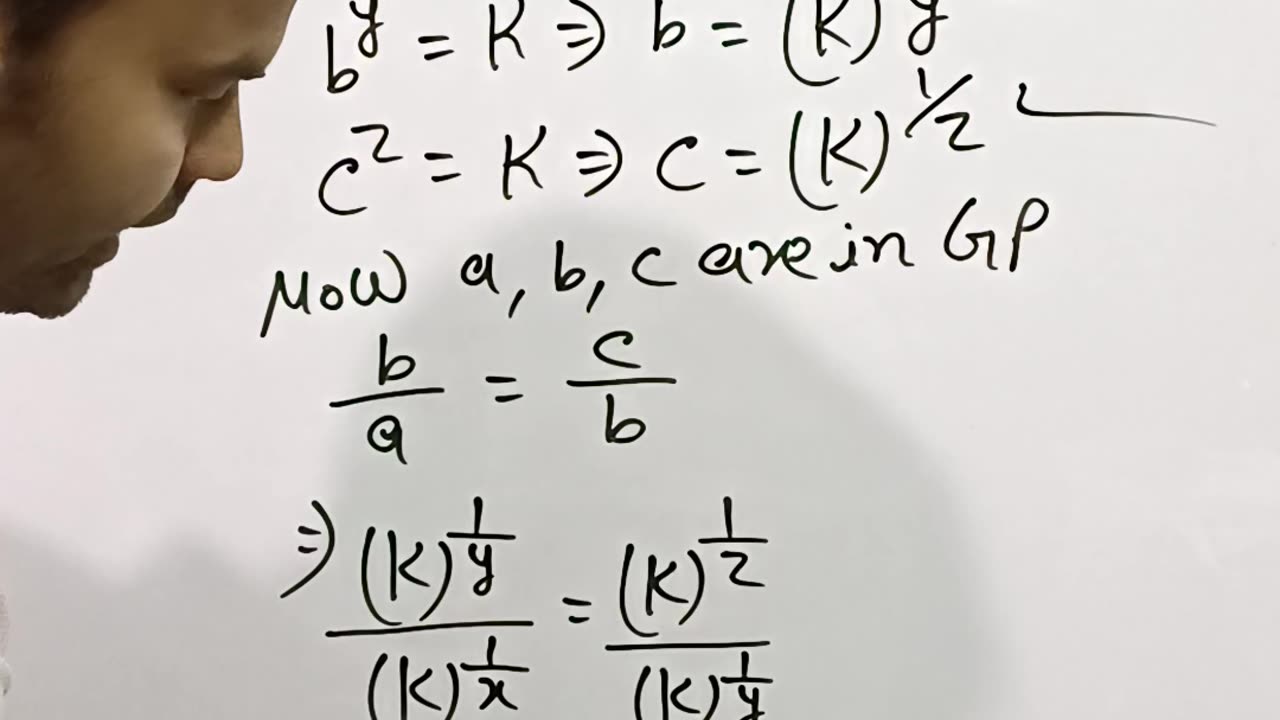 b^y = K ⇒ b = (K)^y
c^z = K ⇒ c = (K)^1/z
Now a, b, c are in GP
b/a = c/b
⇒ (K)^(1/y) / (K)^(1/x) = (K)^(1/z) / (K)^(1/y)